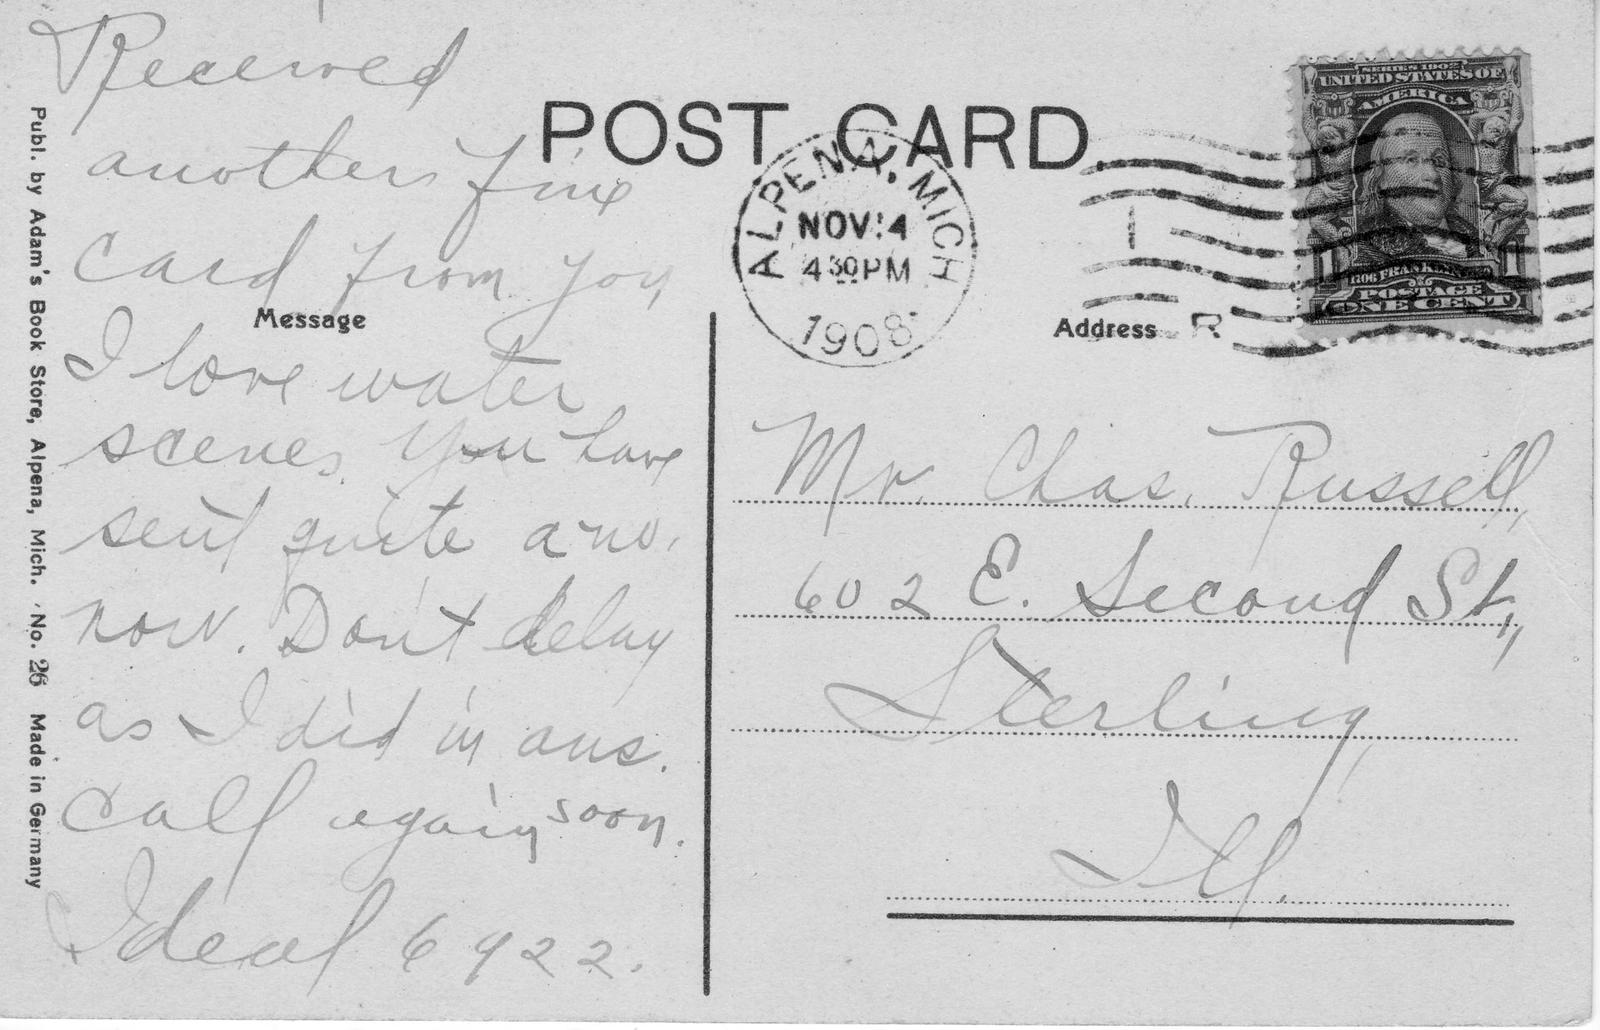 Received
another fine
card from you
I love water
scenes. You have
sent quite a no.
now. Don't delay
as I did in ans.
Call again soon.
Ideal 6922.
Publ. by Adam's Book Store, Alpena, Mich. No. 26 Made in Germany
POST CARD.
Message
ALPENA, MICH
NOV 4
4 30 PM
1908
SERIES 1902
UNITED STATES OF
AMERICA
1 1
POSTAGE
ONE CENT
Address
R
Mr. Chas. Russell,
602 E. Second St.,
Sterling,
Ill.